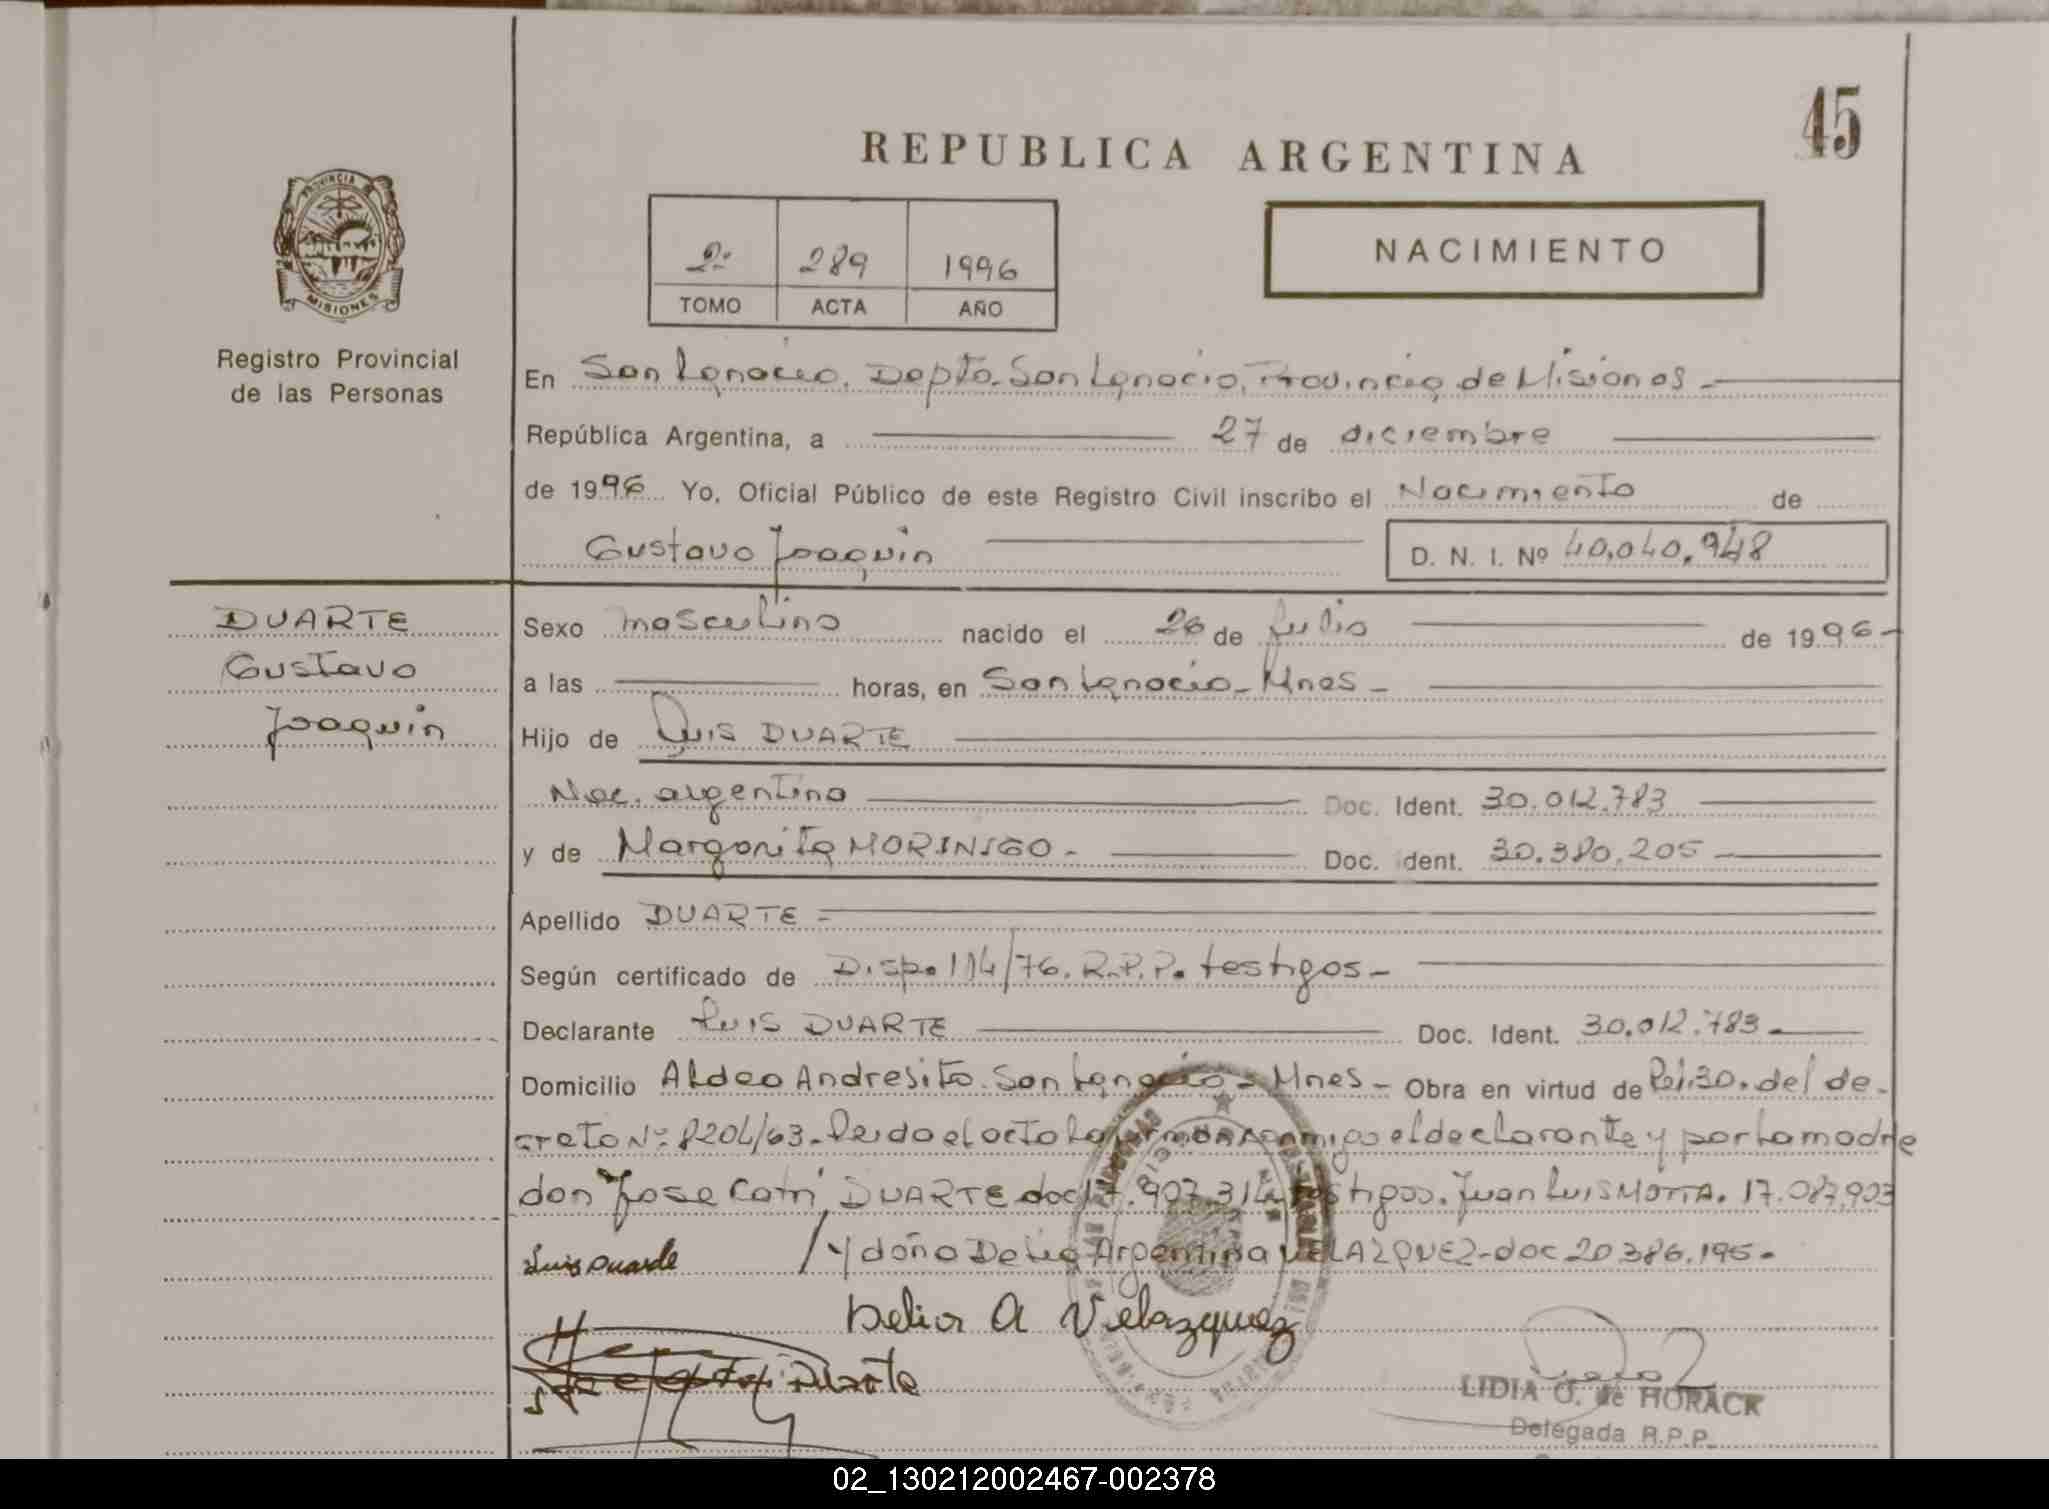 45
REPUBLICA ARGENTINA
PROVINCIA DE
MISIONES
Registro Provincial
de las Personas
2º 289 1996
TOMO ACTA AÑO
NACIMIENTO
En San Ignacio. Depto. San Ignacio, Provincia de Misiones -
República Argentina, a 27 de diciembre
de 1996 Yo, Oficial Público de este Registro Civil inscribo el Nacimiento de
Gustavo Joaquin D. N. I. Nº 40.040.948
DUARTE
Gustavo
Joaquin
Sexo masculino nacido el 26 de Julio de 1996-
a las horas, en San Ignacio - Mnes -
Hijo de Luis DUARTE
Nac. argentino Doc. Ident. 30.012.783
y de Margarita MORINIGO - Doc. Ident. 30.380.205
Apellido DUARTE -
Según certificado de Disp. 114/76. R.P.P. testigos -
Declarante Luis DUARTE Doc. Ident. 30.012.783
Domicilio Aldea Andresito. San Ignacio - Mnes - Obra en virtud de 30. del de-
creto Nº 8204/63 - Leido el acta la firman conmigo el declarante y por la madre
don Jose Catri DUARTE doc 17.907.314 testigos. Juan Luis MOTTA. 17.087.903
Luis Duarte / y doña Delia Argentina VELAZQUEZ - doc 20.386.195 -
Delia A Velazquez
Duarte
LIDIA O. de HORACK
Delegada R.P.P.
02_130212002467-002378